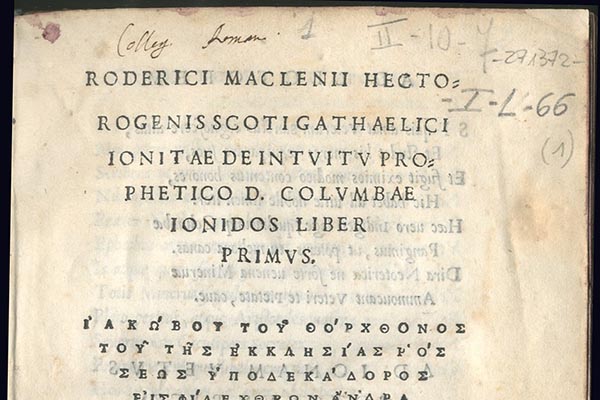 Colleg. Roman.
1
II-10-7
-271372-
-I-L-66
(1)
RODERICI MACLENII HECTO=
ROGENIS SCOTI GATHAELICI
IONITAE DE INTVITV PRO=
PHETICO D. COLVMBAE
IONIDOS LIBER
PRIMVS.
ἸΑΚΏΒΟΥ ΤΟΥ͂ ΘΟΡΧΘΌΝΟΣ
ΤΟΥ͂ ΤΗ͂Σ ἘΚΚΛΗΣΊΑΣ ῬΌΣ
ΣΕΩΣ ὙΠΟΔΕΚΆΔΟΡΟΣ
ἌΝΔΡΑ